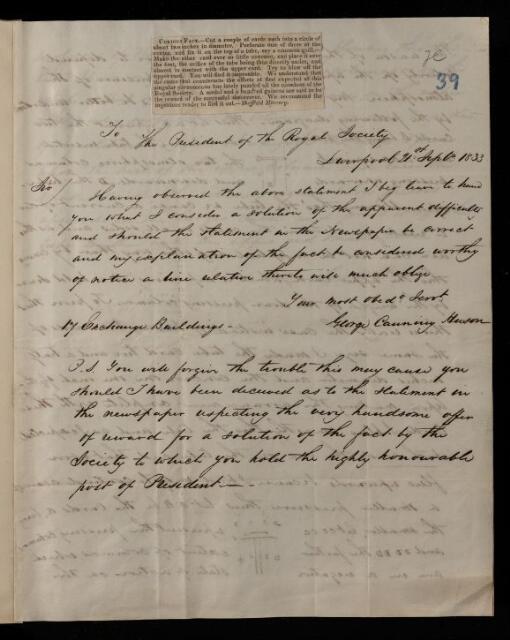 CURIOUS FACT.—Cut a couple of cards each into a circle of
about two inches in diameter. Perforate one of these at the
centre, and fix it on the top of a tube, say a common quill.—
Make the other card ever so little concave, and place it over
the first, the orifice of the tube being thus directly under, and
almost in contact with the upper card. Try to blow off the
upper card. You will find it impossible. We understand that
the cause that counteracts the effects at first expected of this
singular phenomenon has lately puzzled all the members of the
Royal Society. A medal and a hundred guineas are said to be
the reward of the successful discoverer. We recommend the
ingenious reader to find it out.—Sheffield Mercury.
39
To The President of the Royal Society
Liverpool 21st Septr. 1833
Sir
Having observed the above statement I beg leave to hand
you what I consider a solution of the apparent difficulty
and should the statement in the Newspaper be correct
and my explanation of the fact be considered worthy
of notice a line relative thereto will much oblige
Your most obedt. Servt.
17 Exchange Buildings - George Canning Huson
P.S. You will forgive the trouble this may cause you
should I have been deceived as to the statement in
the newspaper respecting the very handsome offer
of reward for a solution of the fact by the
Society to which you hold the highly honourable
post of President —